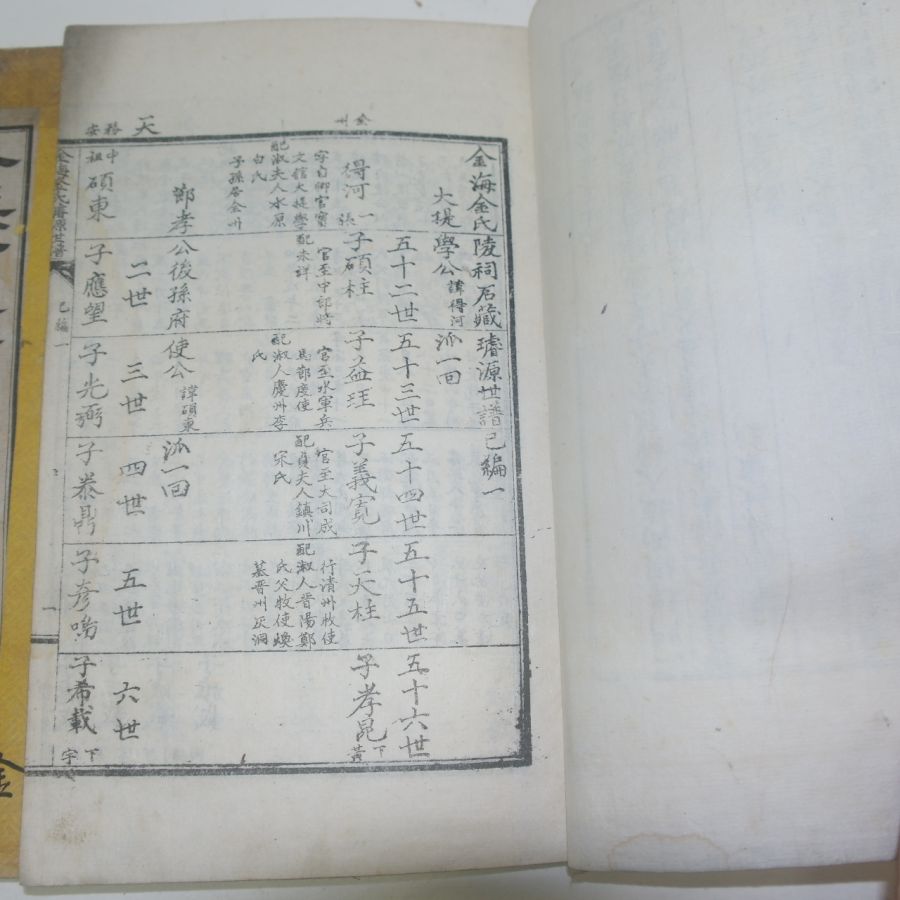 金海金氏陵祠石藏璿源世譜己編一
大提學公諱得河派一回
五十二世
五十三世
五十四世
五十五世
五十六世
金州
得河一張
字自卿官寶
文館大提學
配淑夫人水原
白氏
子孫居金州
子碩柱
官至中郎時
配未詳
子益珪
官至水軍兵
馬節度使
配淑人慶州李
氏
子義寬
官至大司成
配貞夫人鎮川
宋氏
子天柱
行清州牧使
配淑人晉陽鄭
氏父牧使
墓晉州灰洞
子孝昆
下黃
節孝公後孫府使公諱碩東派一回
二世
三世
四世
五世
六世
天
務安
中祖碩東
子應望
子光弼
子泰鼎
子彦鳴
子希載
下宇
金海金氏璿源世譜
己編一
一
金